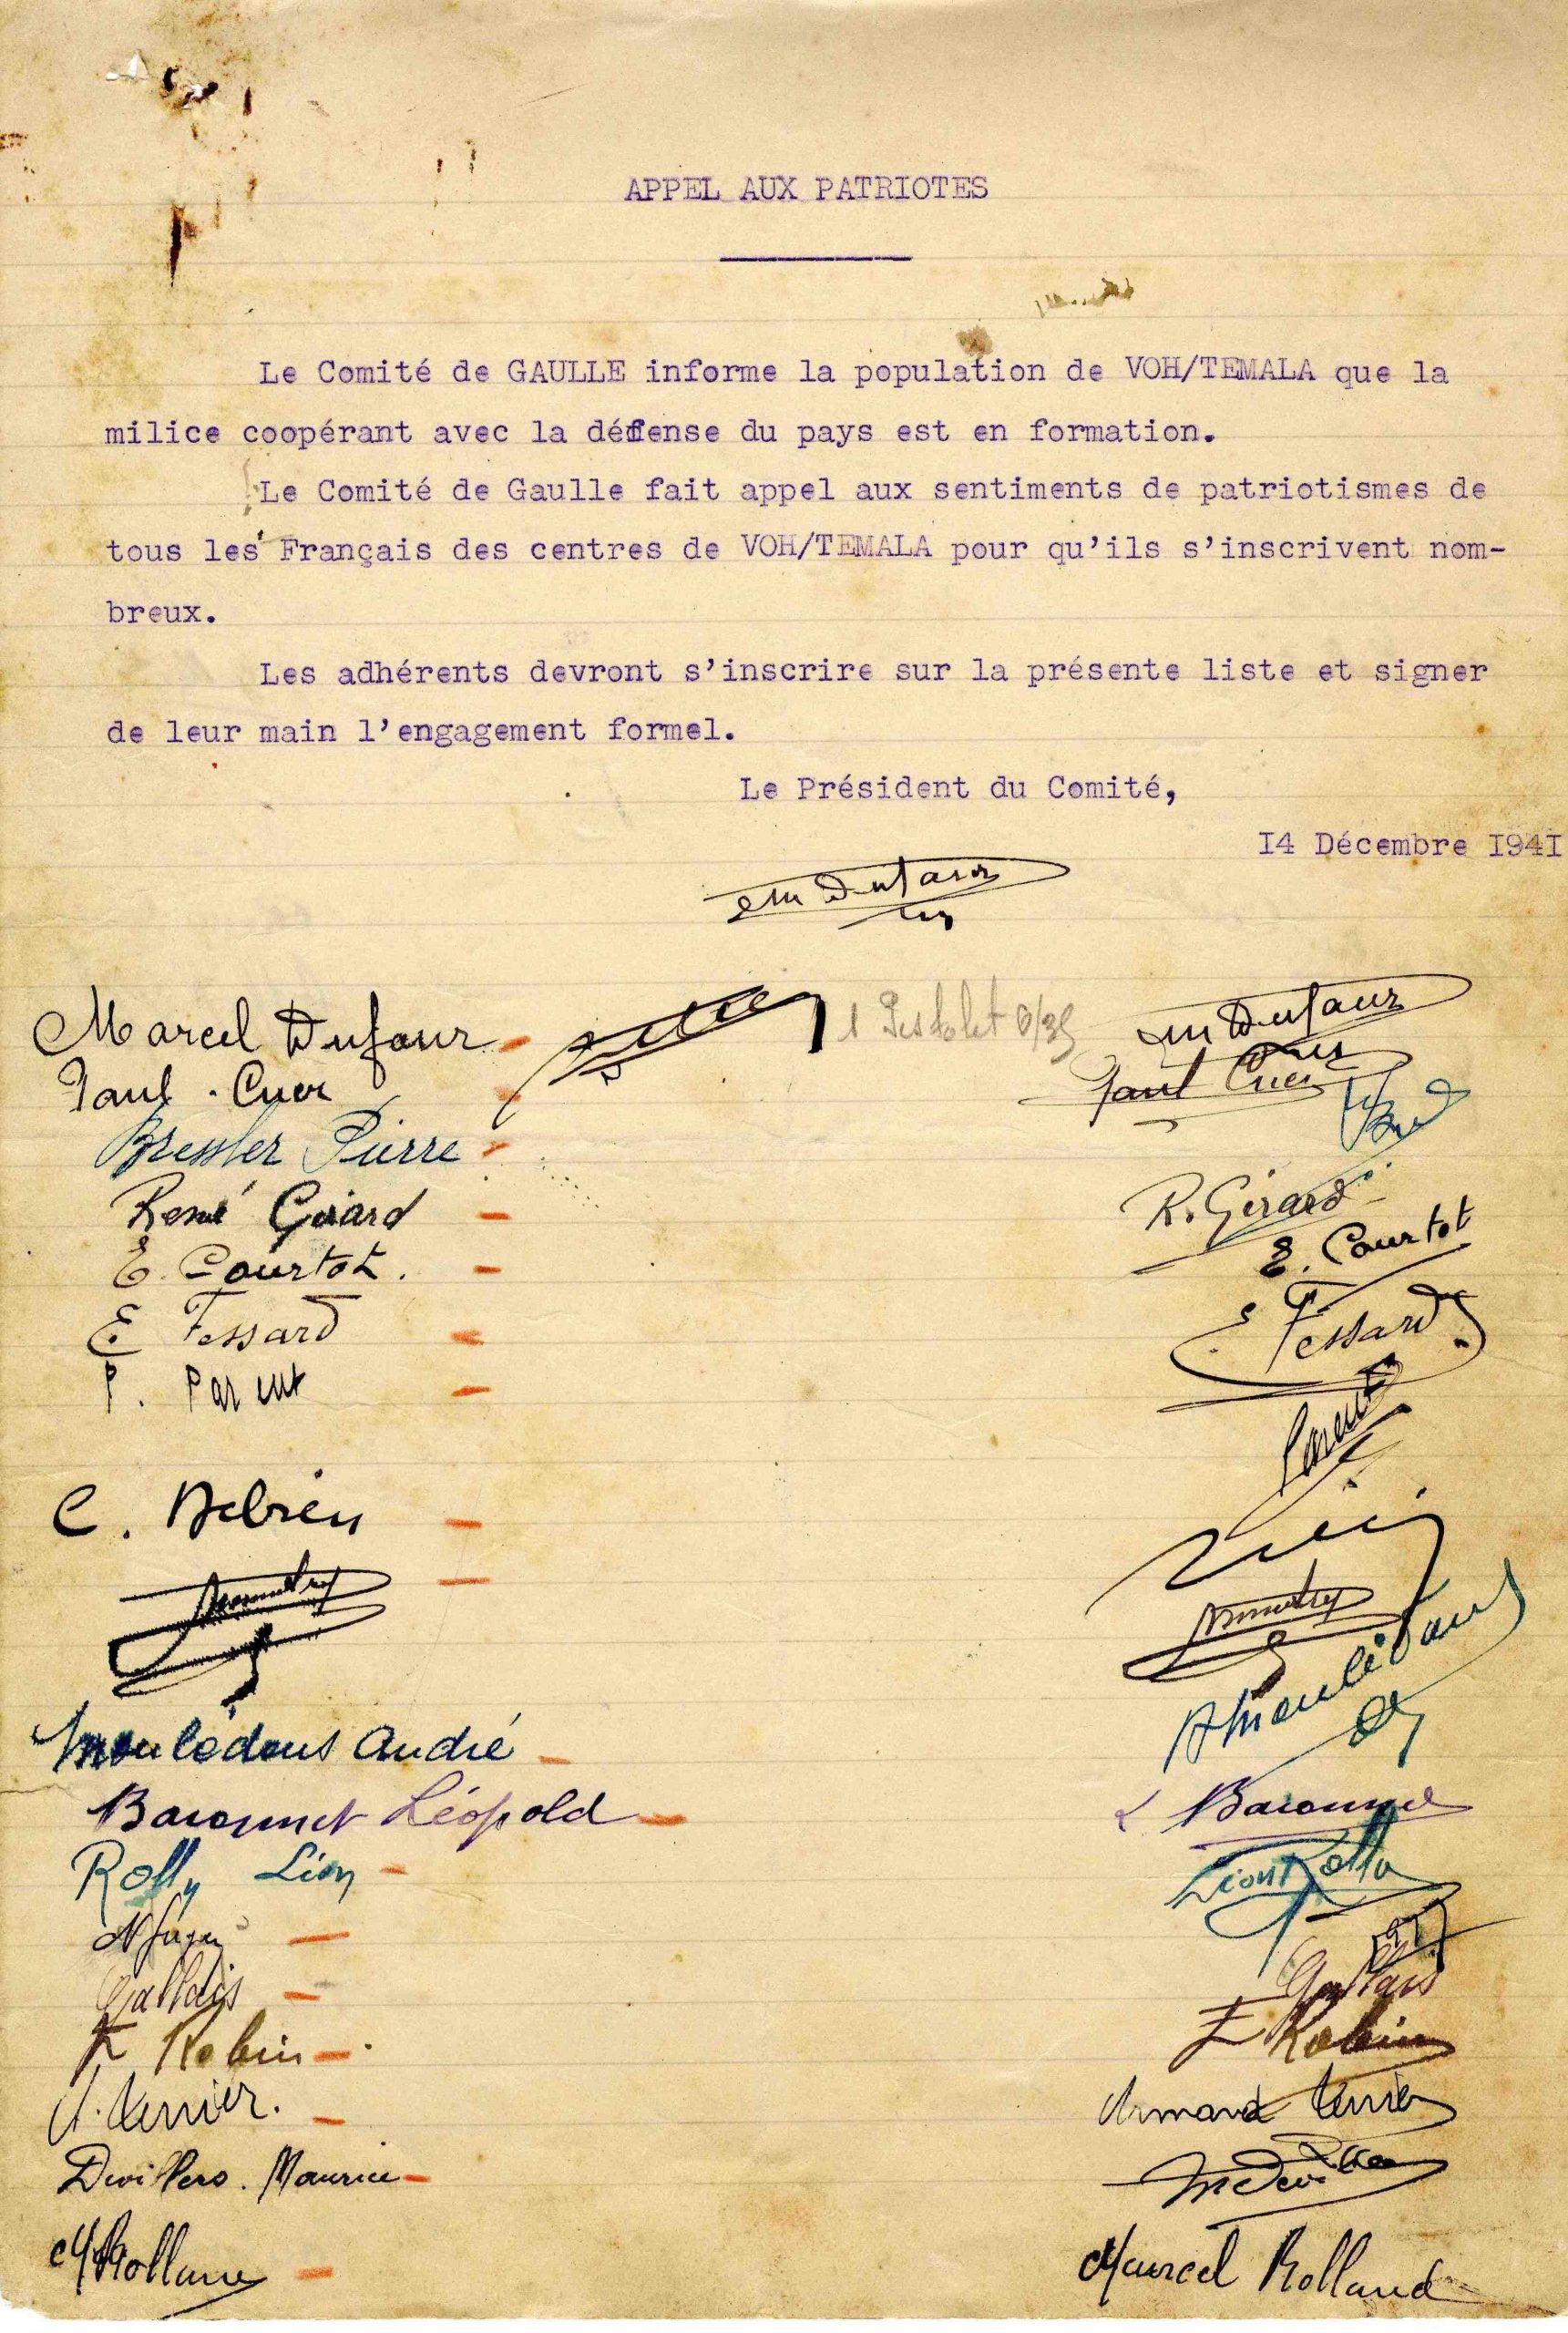 APPEL AUX PATRIOTES
Le Comité de GAULLE informe la population de VOH/TEMALA que la
milice coopérant avec la défense du pays est en formation.
Le Comité de Gaulle fait appel aux sentiments de patriotismes de
tous les Français des centres de VOH/TEMALA pour qu'ils s'inscrivent nom-
breux.
Les adhérents devront s'inscrire sur la présente liste et signer
de leur main l'engagement formel.
Le Président du Comité,
I4 Décembre I94I
em Dufaur
Marcel Dufaur 1 Pistolet 6/35 em Dufaur
Paul . Cuer Paul Cuer
Bressler Pierre
René Girard R. Girard
E. Courtot. E. Courtot
E. Fessard E. Fessard
P. Parent Parent
C. Debien
Moulédous André A Moulédous
Baronnet Léopold L Baronnet
Rolly Léon Léon Rolly
Gallais Gallais
F Robin F Robin
A. Verrier. Armand Verrier
Devillers. Maurice M Devillers
M Rolland Marcel Rolland